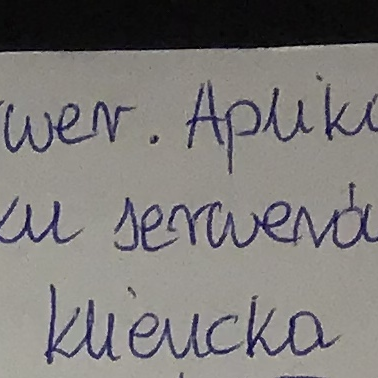 wer. Aplik
ku serweró
kliencka